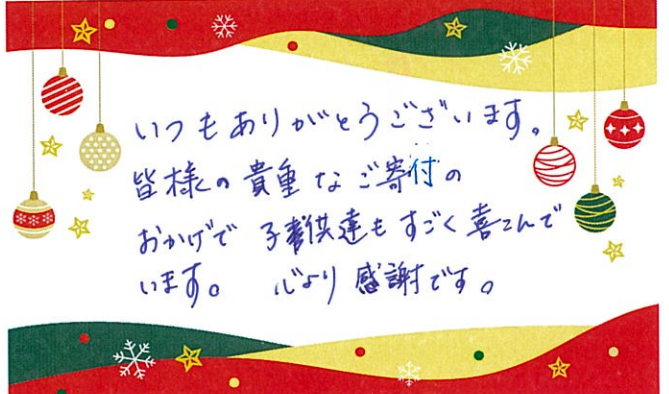 いつもありがとうございます。
皆様の貴重なご寄付の
おかげで 子供達もすごく喜こんで
います。 心より感謝です。